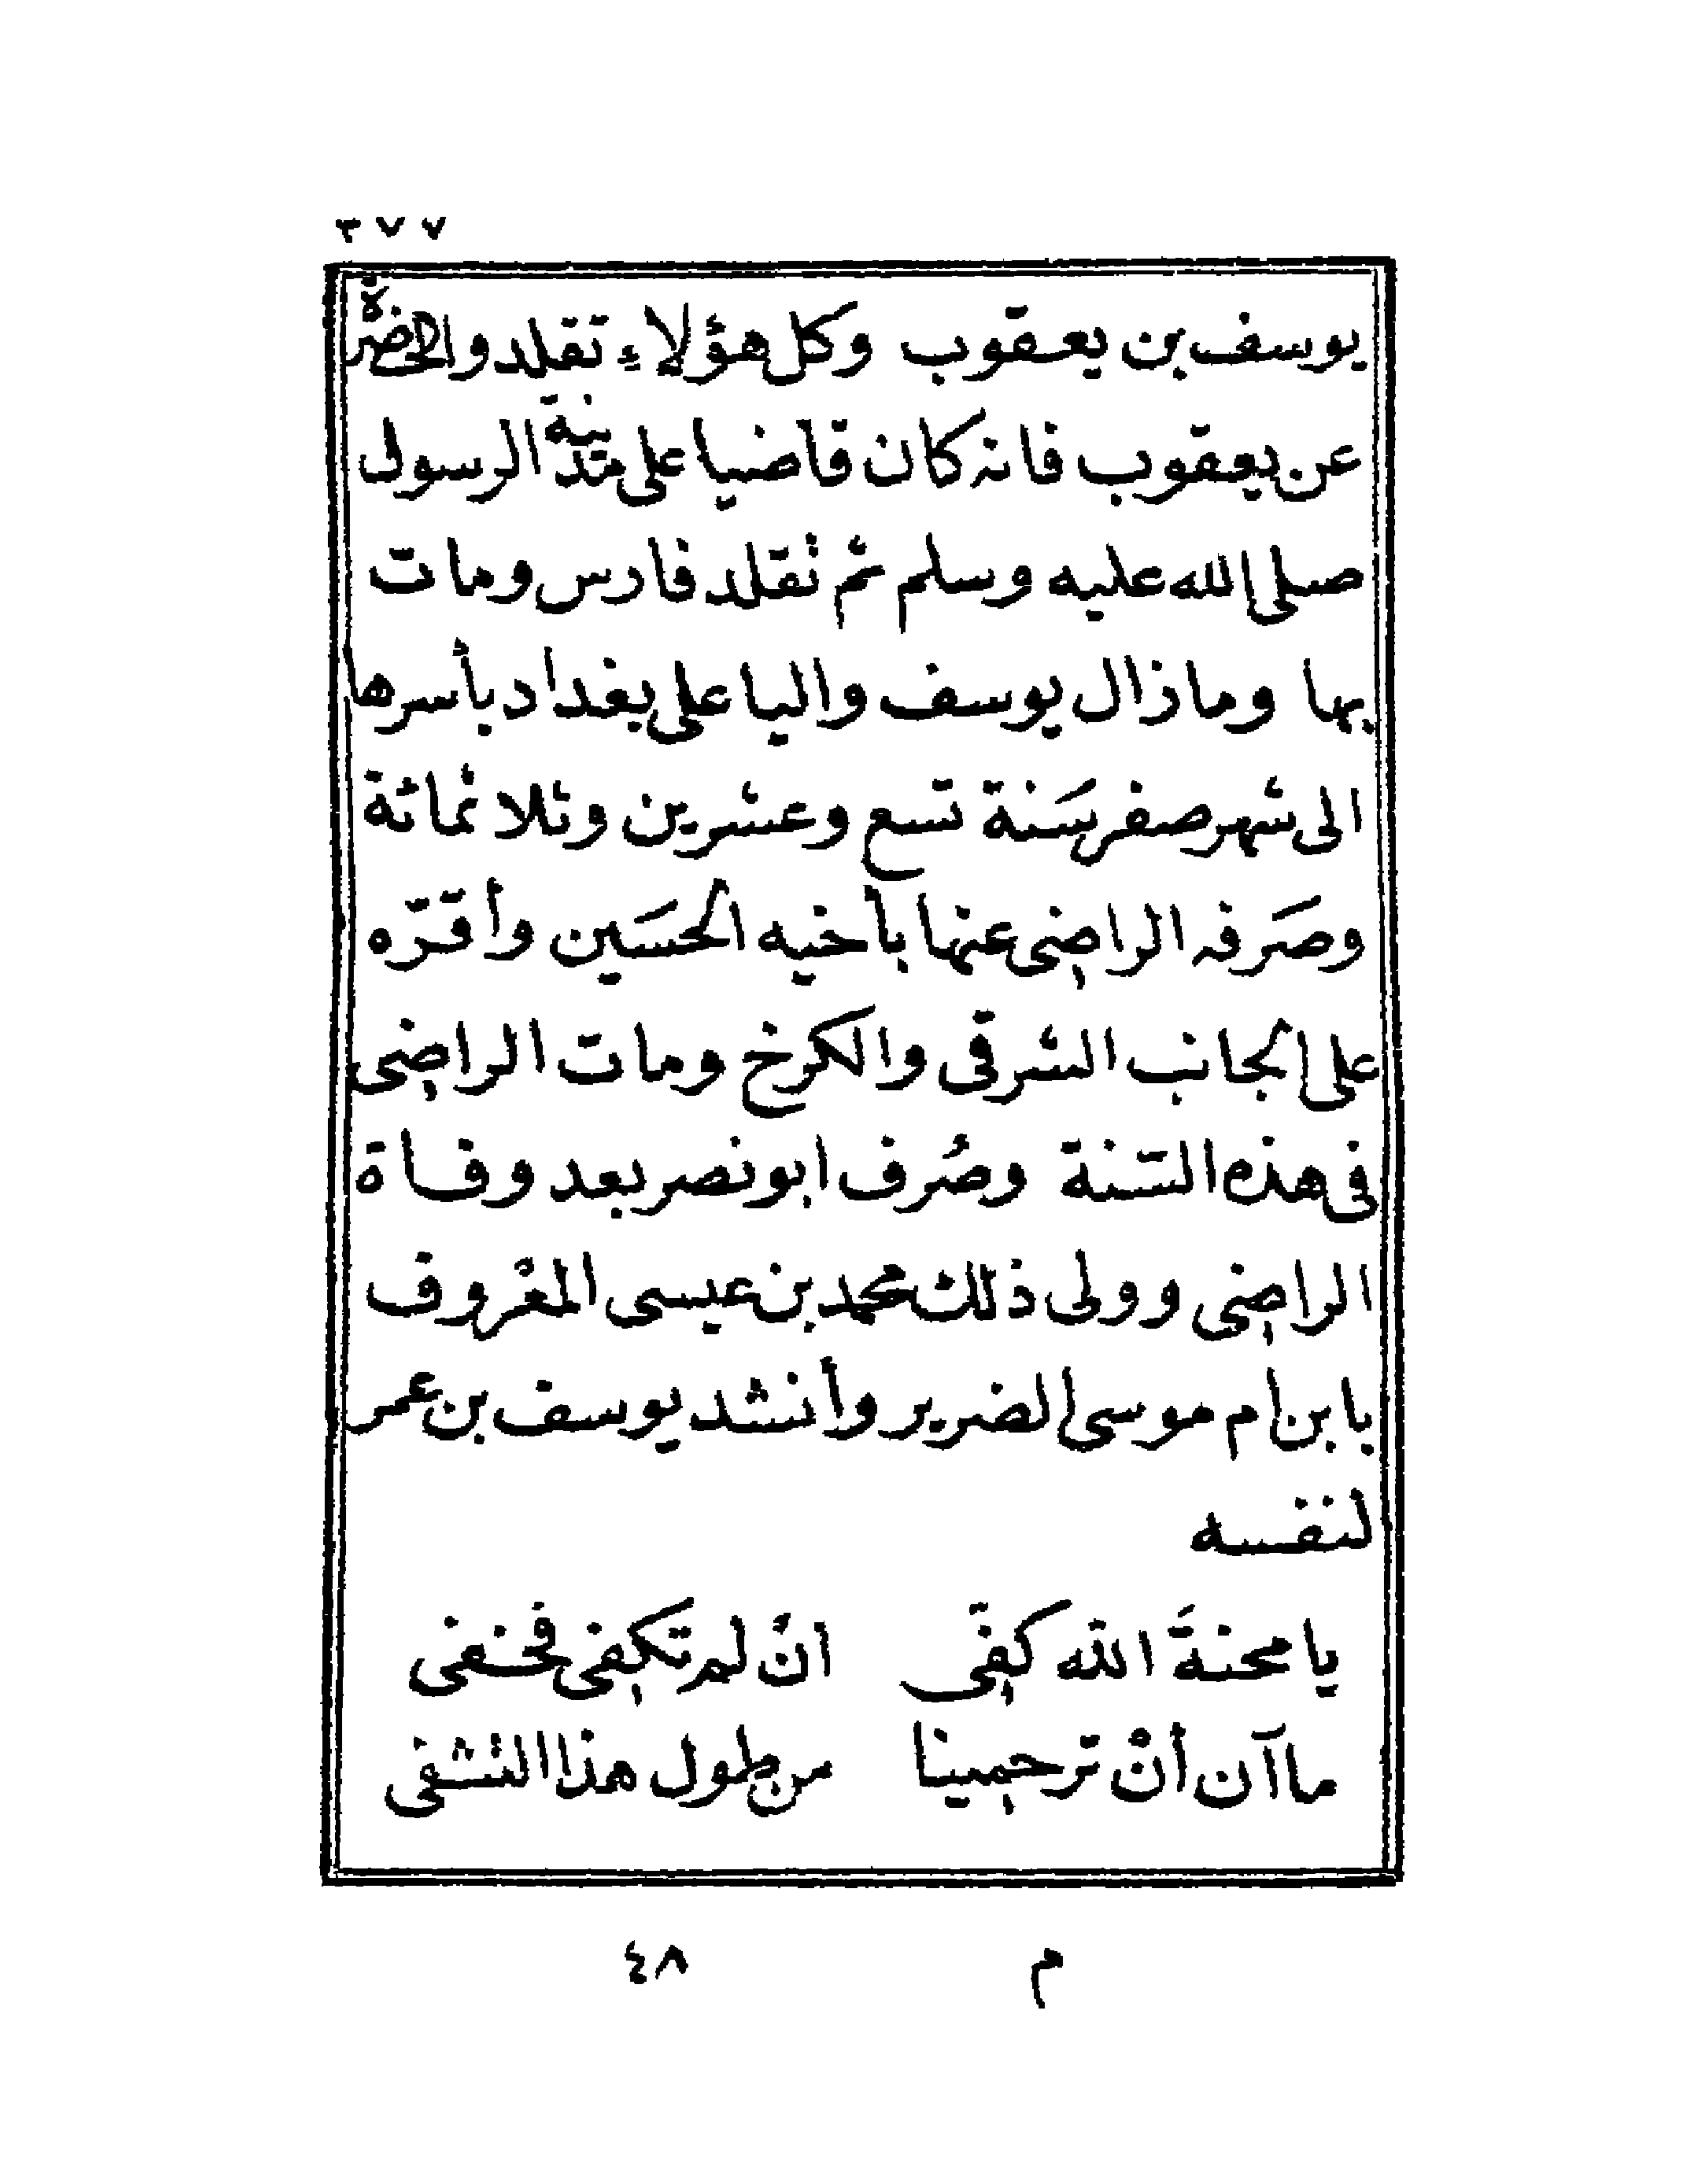 ٣٧٧
يوسف بن يعقوب وكل هؤلاء تقلدوا الحضرة
عن يعقوب فانه كان قاضيا على مدينة الرسول
صلى الله عليه وسلم ثم تقلد فارس ومات
بها وما زال يوسف واليا على بغداد بأسرها
الى شهر صفر سَنة تسع وعشرين وثلاثمائة
وصَرفه الراضى عنها بأخيه الحسَين وأقرّه
على الجانب الشرقى والكرخ ومات الراضى
فى هذه السّنة وصُرف ابو نصر بعد وفاة
الراضى وولى ذلك محمد بن عيسى المعْروف
بابن ام موسى الضرير وأنشد يوسف بن عمر
لنفسه
يا محنةَ الله كفّى انْ لم تكفى فخفى
ما آن أنْ ترحمينا من طول هذا التشفى
م ٤٨